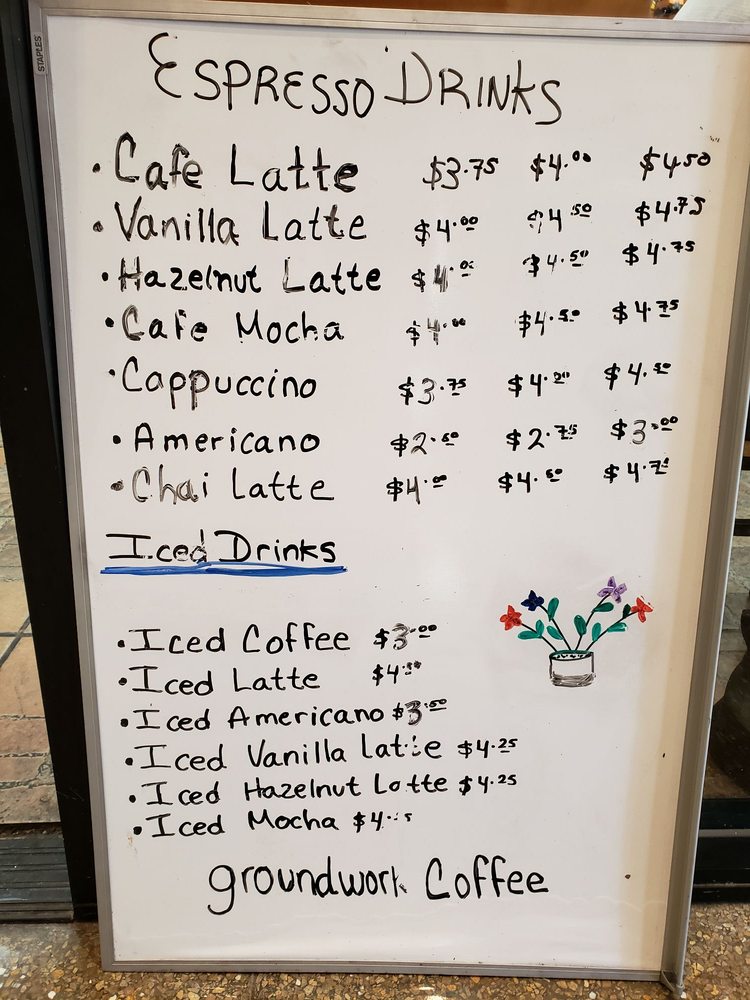 STAPLES
ESPRESSO DRINKS
• Cafe Latte $3.75 $4.00 $4.50
• Vanilla Latte $4.00 $4.50 $4.75
• Hazelnut Latte $4.00 $4.50 $4.75
• Cafe Mocha $4.00 $4.50 $4.75
• Cappuccino $3.75 $4.20 $4.50
• Americano $2.50 $2.75 $3.00
• Chai Latte $4.00 $4.50 $4.75
Iced Drinks
• Iced Coffee $3.00
• Iced Latte $4.50
• Iced Americano $3.50
• Iced Vanilla Latte $4.25
• Iced Hazelnut Latte $4.25
• Iced Mocha
groundwork Coffee